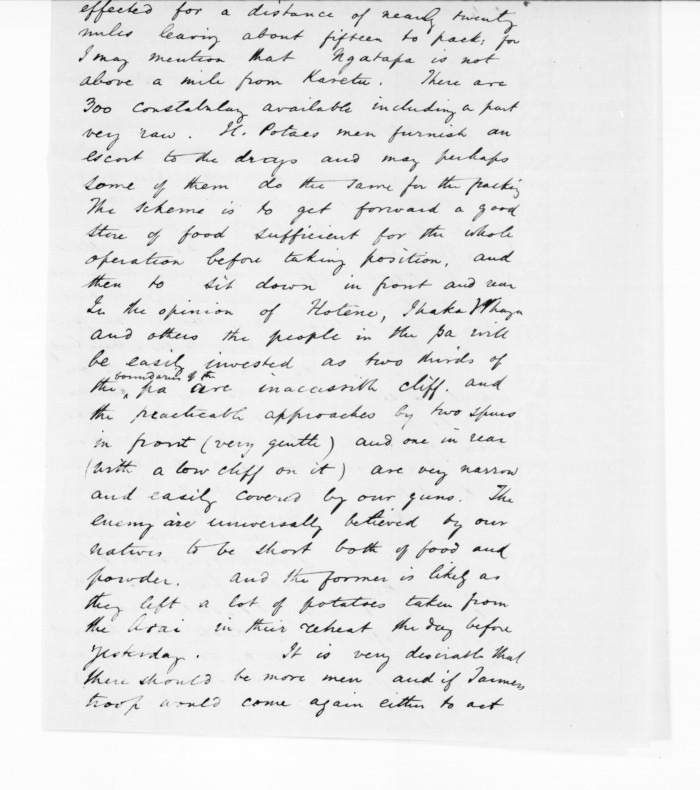 effected for a distance of nearly twenty
miles leaving about fifteen to pack; for
I may mention that Ngatapa is not
above a mile from Karetu. There are
300 constabulary available including a part
very raw. H. Potaes men furnish an
escort to the drays and may perhaps
some of them do the same for the packing
The scheme is to get forward a good
store of food sufficient for the whole
operation before taking position, and
then to sit down in front and rear
In the opinion of Hotene, Ihaka Whanga
and others the people in the pa will
be easily invested as two thirds of
boundaries of the
the pa are inaccessible cliff. and
the practicable approaches by two spurs
in front (very gentle) and one in rear
(with a low cliff on it) are very narrow
and easily covered by our guns. The
enemy are universally believed by our
natives to be short both of food and
powder. and the former is likely as
they left a lot of potatoes taken from
the Arai in their retreat the day before
yesterday. It is very desirable that
there should be more men and if
troop would come again either to act